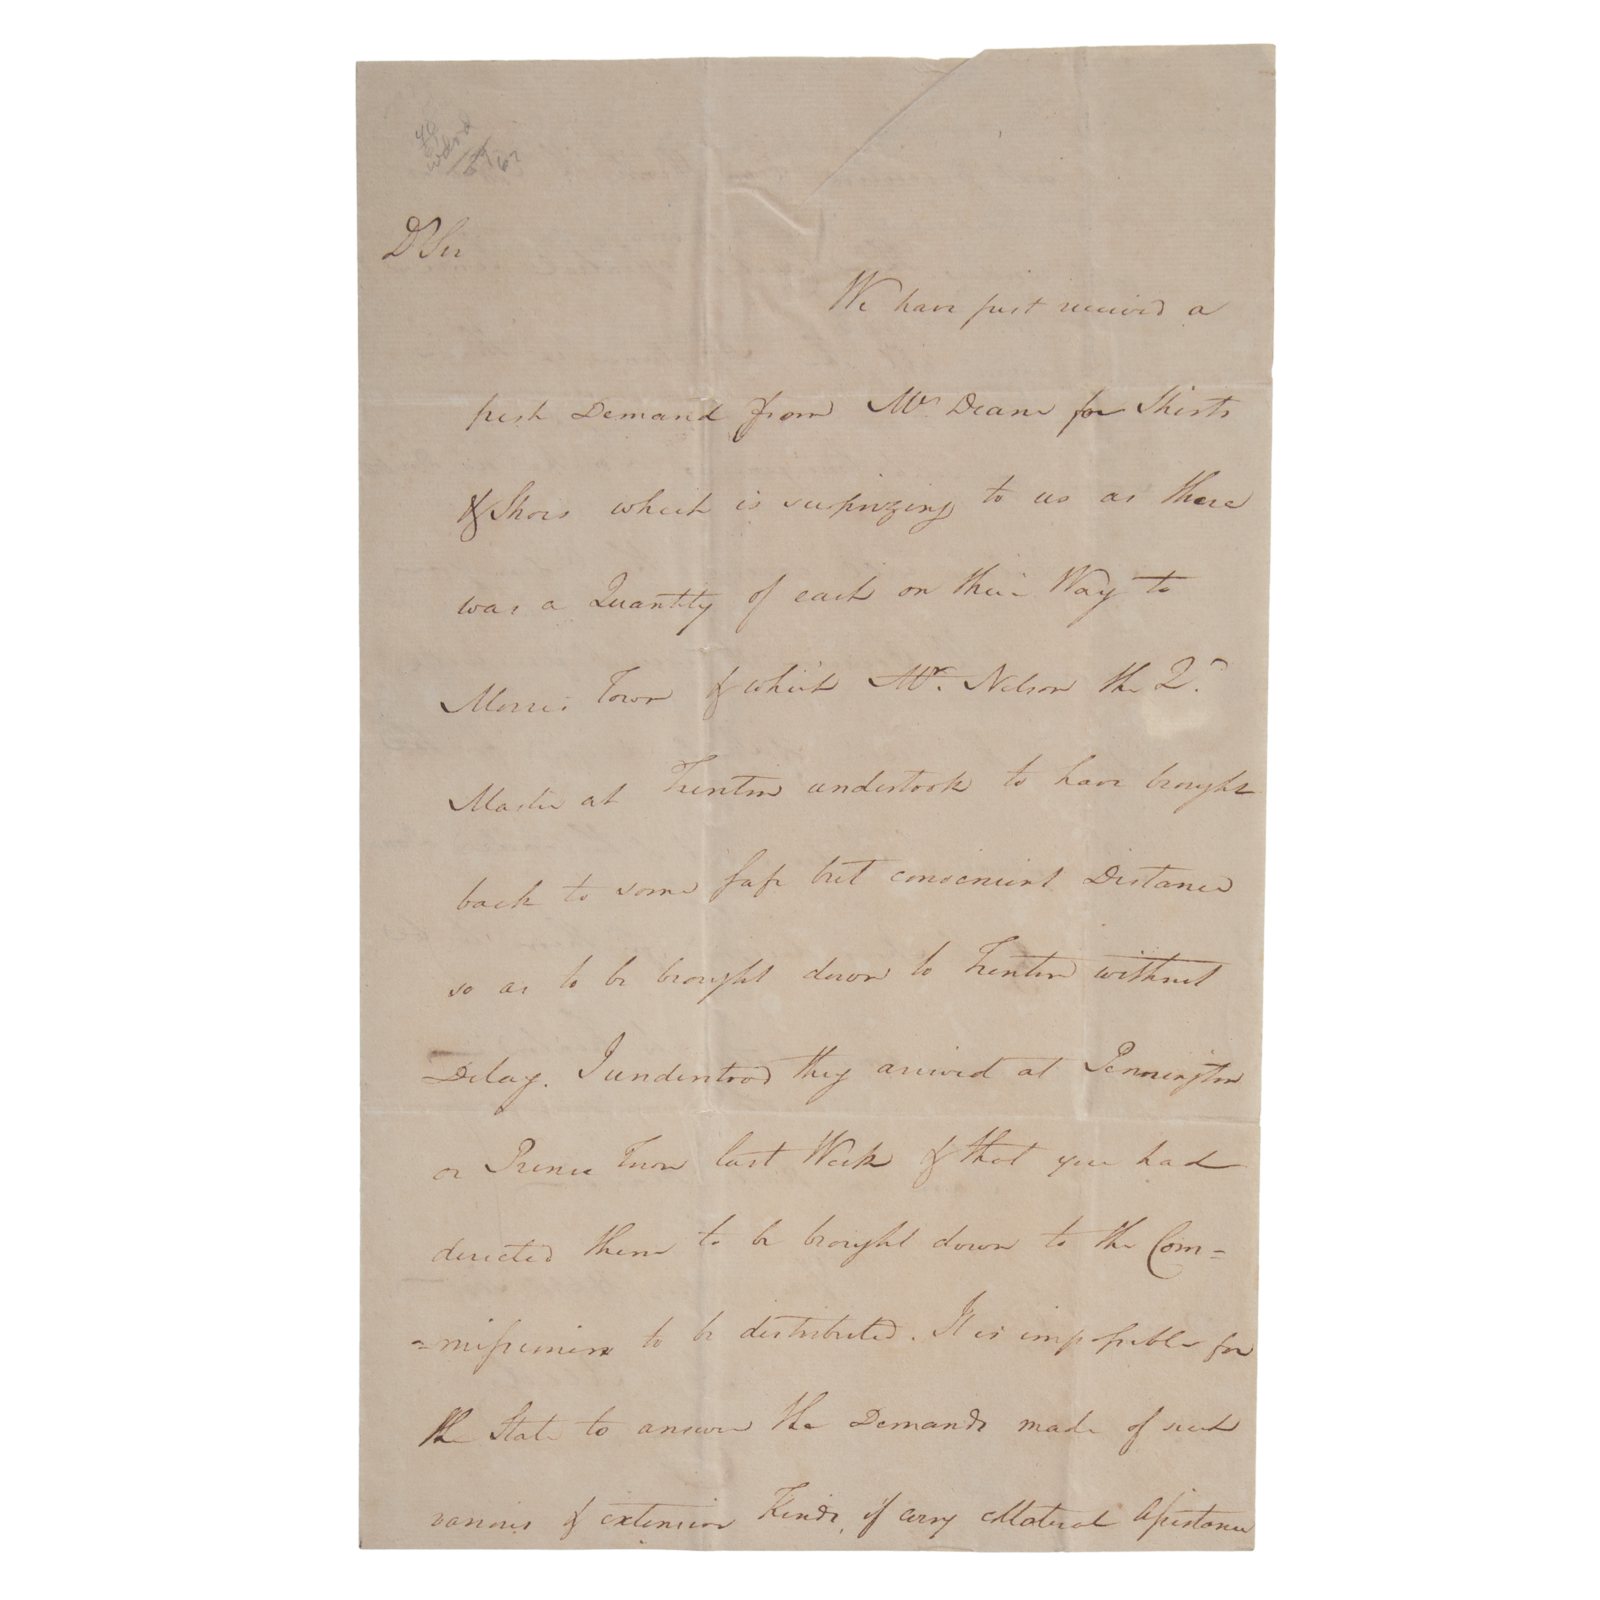 Dr Sir
We have just received a
fresh Demand from Mr. Deane for Shirts
& Shoes which is surprizing to us as there
was a Quantity of each on their Way to
Morris Town & which Mr. Nelson the Qr.
Master at Trenton undertook to have brought
back to some safe but convenient Distance
so as to be brought down to Trenton without
Delay. I understood they arrived at Pennington
or Prince Town last Week & that you had
directed them to be brought down to the Com=
=missioners to be distributed. It is impossible for
the State to answer the Demands made of such
various & extensive Kinds, if every Material Assistance